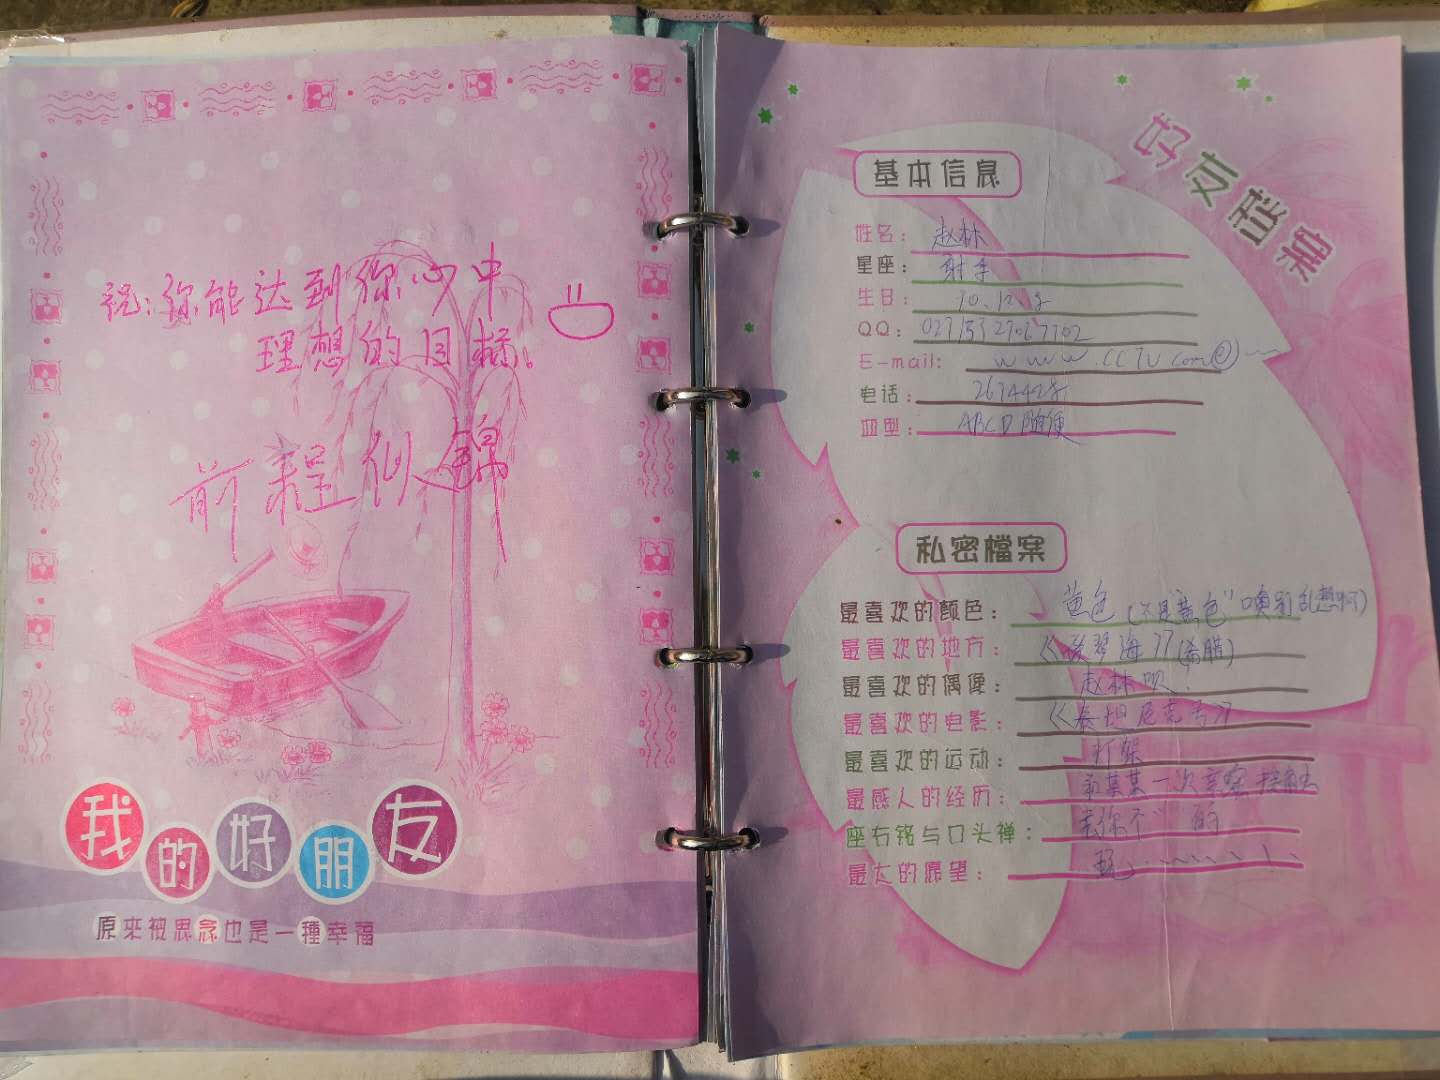 祝：你能达到你心中
理想的目标。
前程似锦
我的好朋友
原來被思念也是一種幸福
好友檔案
基本信息
姓名：赵林
星座：射手
生日：10.12.
QQ：02715327067702
E-mail: www.CCTV com@
电话：2634428
血型：ABCD随便
私密檔案
最喜欢的颜色：黄色(不是"黄色"噢别乱想啊)
最喜欢的地方：《爱琴海》(希腊)
最喜欢的偶像：赵林呗！
最喜欢的电影：《泰坦尼克号》
最喜欢的运动：打架
最感人的经历：和某某一次亲密接触
座右铭与口头禅：我你个" 的
最大的愿望：玩